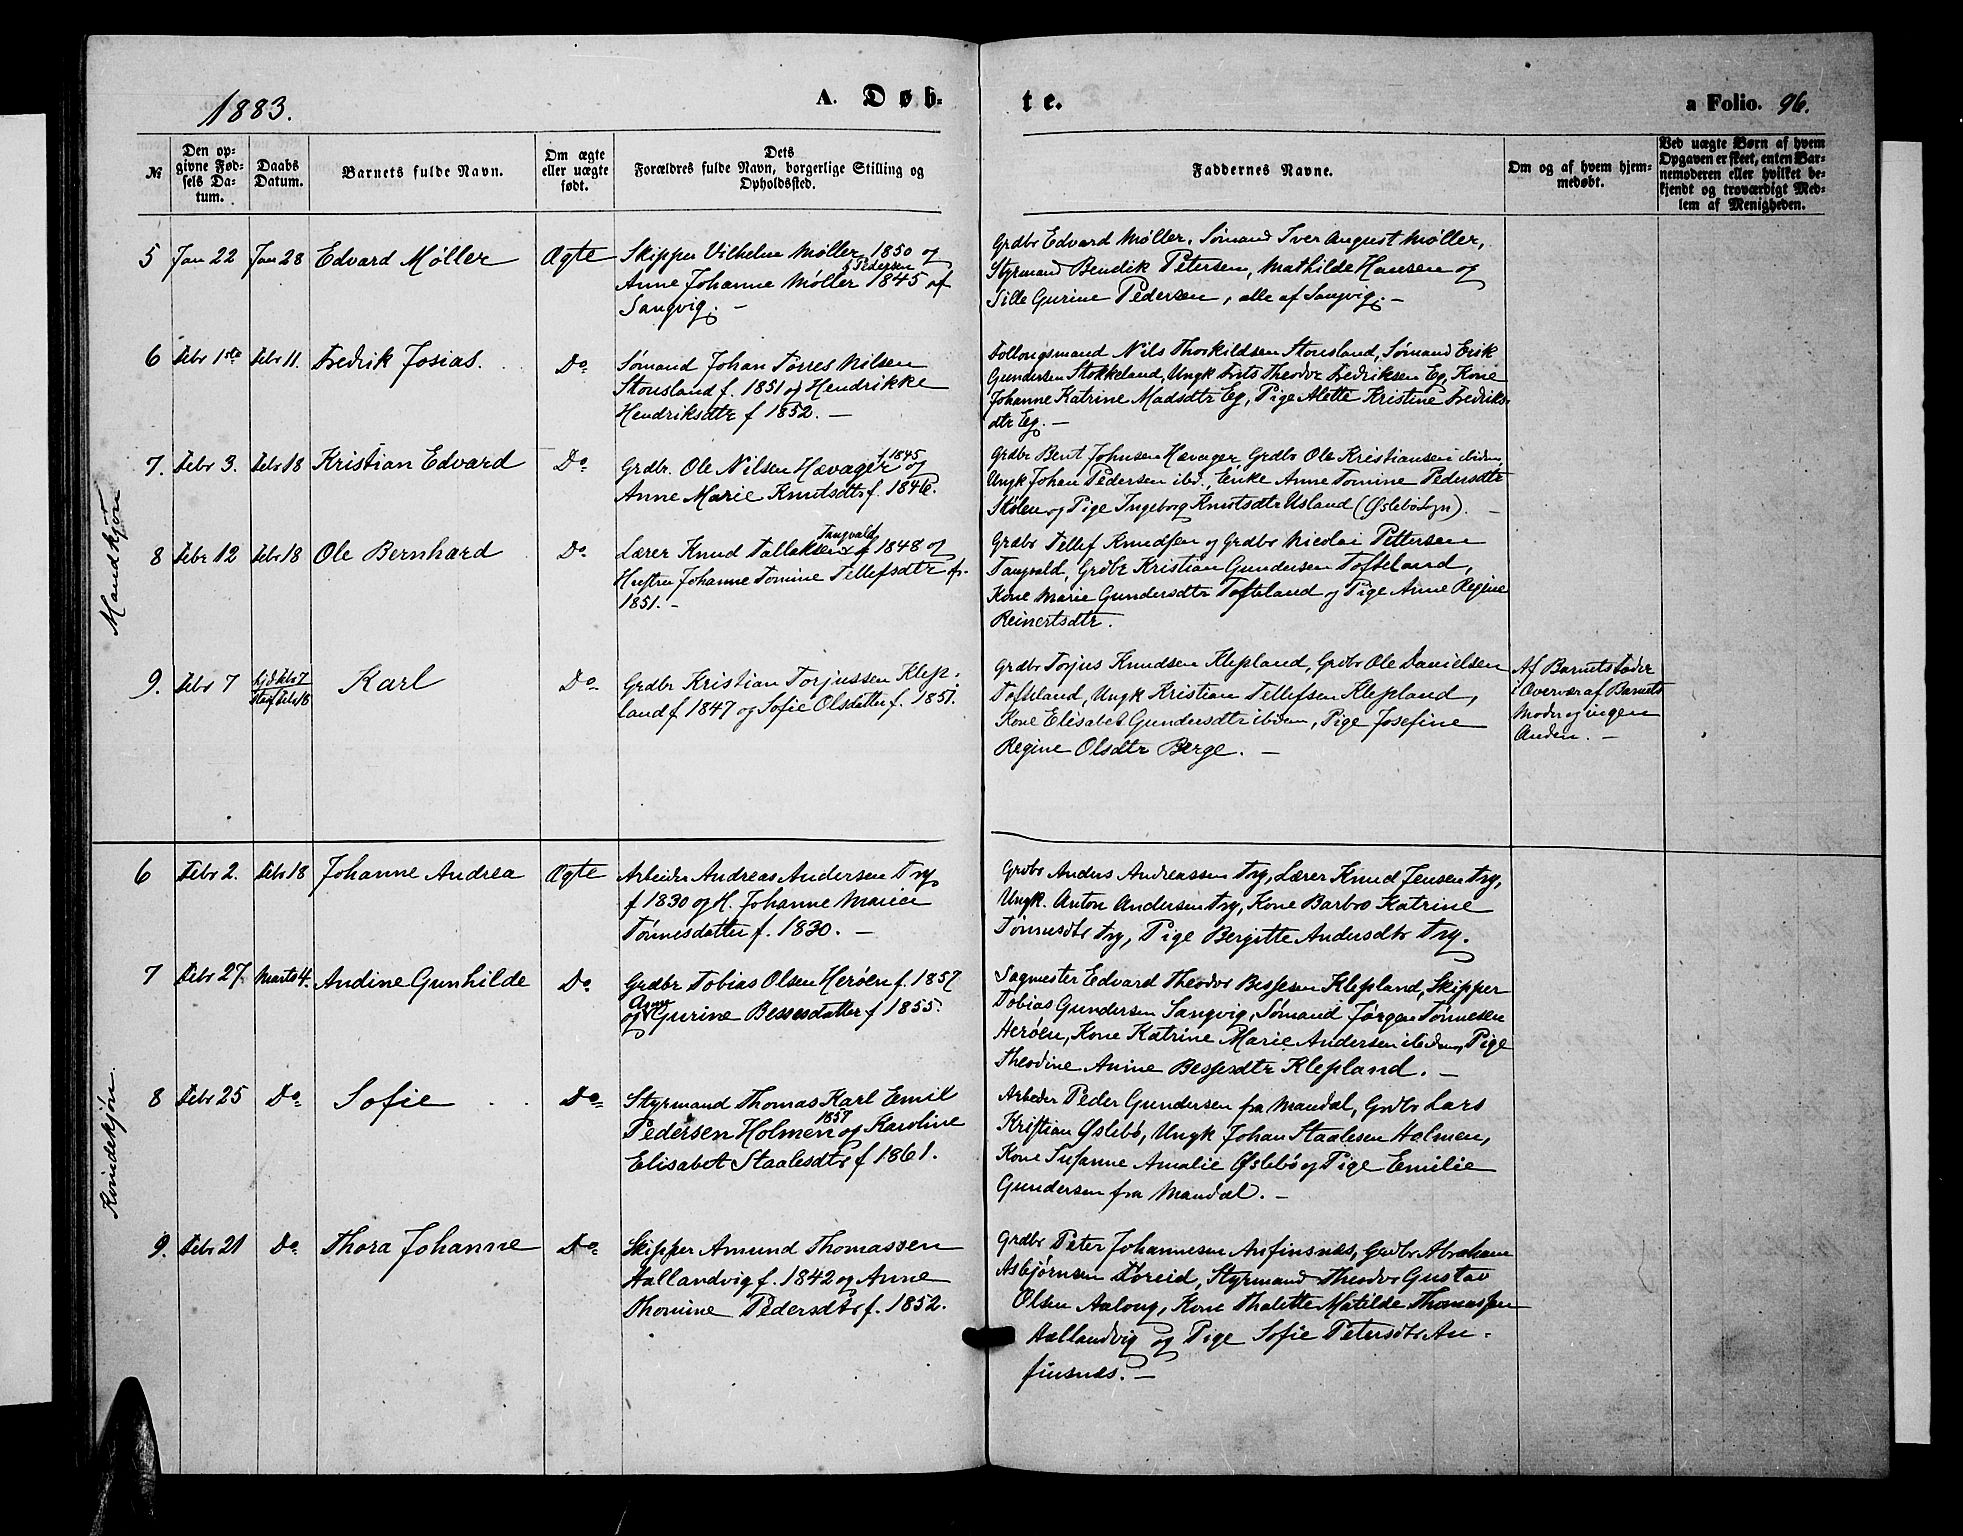 1883.
A. Døb-
te.
a Folio. 96.
№
Den op-
givne Fød-
sels Da-
tum.
Daabs
Datum.
Barnets fulde Navn.
Om ægte
eller uægte
født.
Dets
Forældres fulde Navn, borgerlige Stilling og
Opholdssted.
Faddernes Navne.
Om og af hvem hjem-
medøbt.
Ved uægte Børn af hvem
Opgaven er skeet, enten Bar-
nemoderen eller hvilket be-
kjendt og troværdigt Med-
lem af Menigheden.
Mandkjøn
5 Jan 22 Jan 28 Edvard Møller Ægte
Skipper Vilhelm Møller 1850 og
f Pedersen
Anne Johanne Møller 1845 af
Sangvig. –
Grdbr Edvard Møller, Sømand Iver August Møller,
Styrmand Bendik Petersen, Mathilde Hansen og
Sille Gurine Pedersen, alle af Sangvig. –
6 Febr 1ste Febr 11. Fredrik Josias. Do
Sømand Johan Tørres Nilsen
Stousland f. 1851 og Hendrikke
Hendriksdtr f 1852. –
Follougsmand Nils Thorkildsen Stousland, Sømand Erik
Gundersen Stokkeland, Ungk Frits Theodor Fredriksen Eg, Kone
Johanne Katrine Madsdtr Eg, Pige Alette Kristine Fredriks-
dtr Eg. –
7. Febr 3. Febr 18 Kristian Edvard Do
f 1845
Grdbr. Ole Nilsen Hævager og
Anne Marie Knutsdtr f. 1846.
Grdbr Bent Johnsen Hævager, Grdbr Ole Kristiansen ibidem,
Ungk Johan Pedersen ibd., Enke Anne Tomine Pedersdtr
Stølen og Pige Ingeborg Knutsdtr Usland (Øslebø Sogn). –
8 Febr 12 Febr 18 Ole Bernhard Do
Tangvald
Lærer Knud Tallaksen f 1848 og
Hustru Johanne Tomine Tellefsdtr f.
1851. –
Grdbr Tellef Knudsen og Grdbr Nicolai Pettersen
Tangvald, Grdbr Kristian Gundersen Tofteland,
Kone Marie Gundersdtr Tofteland og Pige Anne Regine
Reinertsdtr.
9. Febr 7 hjd Febr 7
Stadf Febr 18
Karl Do
Grdbr Kristian Torjussen Klep-
land f 1847 og Sofie Olsdatter f. 1851.
Grdbr Torjus Knudsen Klepland, Grdbr Ole Danielsen
Tofteland, Ungk Kristian Tellefsen Klepland,
Kone Elisabet Gundersdtr ibidem, Pige Josefine
Regine Olsdtr Berge. –
Af Barnets Fader
i Overvær af Barnets
Moder og ingen
Anden. –
Kvindekjøn.
6 Febr 2. Febr 18 Johanne Andrea Ægte
Arbeider Andreas Andersen Try
f 1830 og H. Johanne Marie
Tønnesdatter f. 1830. –
Grdbr Anders Andreassen Try, Lærer Knud Jensen Try,
Ungk. Anton Andersen Try, Kone Barbro Katrine
Tønnesdtr Try, Pige Bergitte Andersdtr Try.
7 Febr 27. Marts 4. Andine Gunhilde Do
Grdbr Tobias Olsen Herøen f. 1857
Anne
og Gurine Bessesdatter f 1855.
Sagmester Edvard Theodor Bessesen Klepland, Skipper
Tobias Gundersen Sangvig, Sømand Jørgen Tønnesen
Herøen, Kone Katrine Marie Andersen ibidem, Pige
Theodine Anine Bessesdtr Klepland. –
8 Febr 25 Do Sofie Do
Styrmand Thomas Karl Emil
1857
Pedersen Holmen og Karoline
Elisabet Staalesdtr f 1861.
Arbeder Peder Gundersen fra Mandal, Grdbr Lars
Kristian Øslebø, Ungk Johan Staalesen Holmen,
Kone Susanne Amalie Øslebø og Pige Emilie
Gundersen fra Mandal. –
9. Febr 21 Do Thora Johanne Do
Skipper Amund Thomassen
Hallandvig f. 1842 og Anne
Thomine Pedersdtr f. 1852.
Grdbr Peter Johannesen Anfinsnes, Grdbr Abraham
Asbjørnsen Foreid, Styrmand Theodor Gustav
Olsen Aalong, Kone Thalette Matilde Thomassen
Hallandvig og Pige Sofie Petersdtr An-
finsnes. –